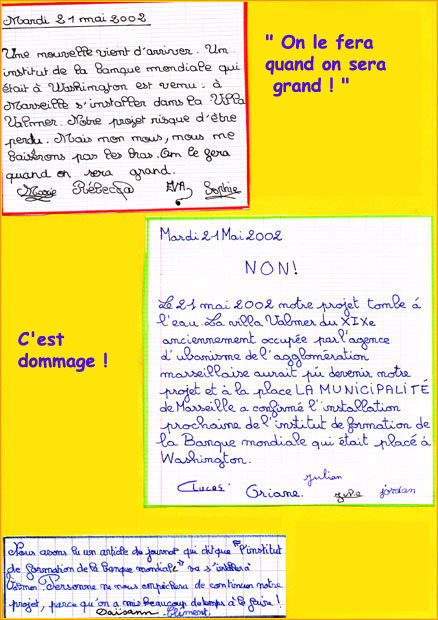 Mardi 21 mai 2002
Une nouvelle vient d'arriver. Un
institut de la banque mondiale qui
était à Washington est venu à
Marseille s'installer dans la Villa
Valmer. Notre projet risque d'être
perdu. Mais non nous, nous ne
baisserons pas les bras. On le fera
quand on sera grand.
Marie Rébecca EVA Sophie
" On le fera
quand on sera
grand ! "
Mardi 21 Mai 2002
NON!
Le 21 mai 2002 notre projet tombe á
l'eau. La villa Valmer du XIXe
anciennement occupée par l'agence
d'ubanisme de l'agglomération
marseillaise aurait pú devenir notre
projet et à la place LA MUNICIPALITÉ
de Marseille a confirmé l'installation
prochaine de l'institut de formation de
la Banque mondiale qui était placé à
Washington.
Lucas Oriane julian jordan
C'est
dommage !
Nous avons lu un article de journal qui dit que "l'institut
de formation de la banque mondiale" va s'installer à
Valmer. Personne ne nous empêchera de continuer notre
projet, parce qu'on a mis beaucoup de temps à le faire !
Clément